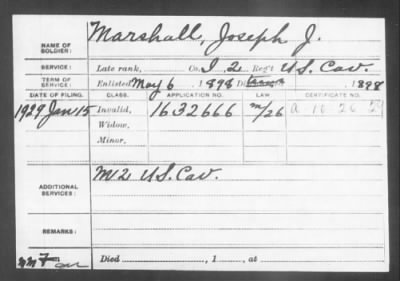 NAME OF SOLDIER: Marshall, Joseph J.
SERVICE: Late rank, Co. I, 2 Reg't U.S. Cav.
TERM OF SERVICE: Enlisted May 6 1898 1898
DATE OF FILING. CLASS. APPLICATION NO. LAW CERTIFICATE NO.
1929 Jan 15 Invalid, 1632666 m/26
Widow,
Minor,
ADDITIONAL SERVICES: M 2 U.S. Cav.
REMARKS:
Died , 1 , at